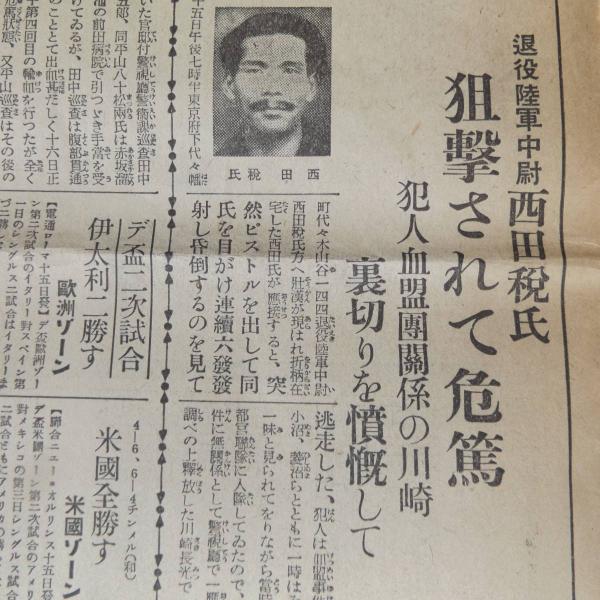 退役陸軍中尉 西田税氏
狙撃されて危篤
犯人血盟團關係の川崎
裏切りを憤慨して
西田税氏
十五日午後七時半東京府下代々幡
町代々木山谷一四四退役陸軍中尉
西田税氏方へ壮漢が現はれ折柄在
宅した西田氏が應接すると、突
然ピストルを出して同
氏を目がけ連續六發發
射し昏倒するのを見て
逃走した、犯人は血盟事件
小沼、菱沼らとともに一時は
一味と見られてをりながら當時
都宮聯隊に入隊してゐたので、
件に無關係として警視廳で一應
調べの上釋放した川崎長光で
いた官邸付警視廳警衛課巡査田中
五郎、同平山八十松兩氏は赤坂溜
池の前田病院で引つゞき手當を受
けてゐるが、田中巡査は腹部貫通
のことゝて出血甚だしく十六日正
午第四回目の輸血を行つたが全く
危篤狀態、又平山巡査はその後の
デ盃二次試合
伊太利二勝す
歐洲ゾーン
【電通ローマ十五日發】デ盃歐洲ゾー
ン第二次試合のイタリー對スペイン第
一日のシングルス二試合はイタリーま
づ二勝
4—6、6—4チンメル(和)
米國全勝す
米國ゾーン
【聯合ニューオルリンス十五日發】
デ盃米國ゾーン第二次試合のアメリ
對メキシコの第三日シングルス試合
二試合ともにアメリカの勝